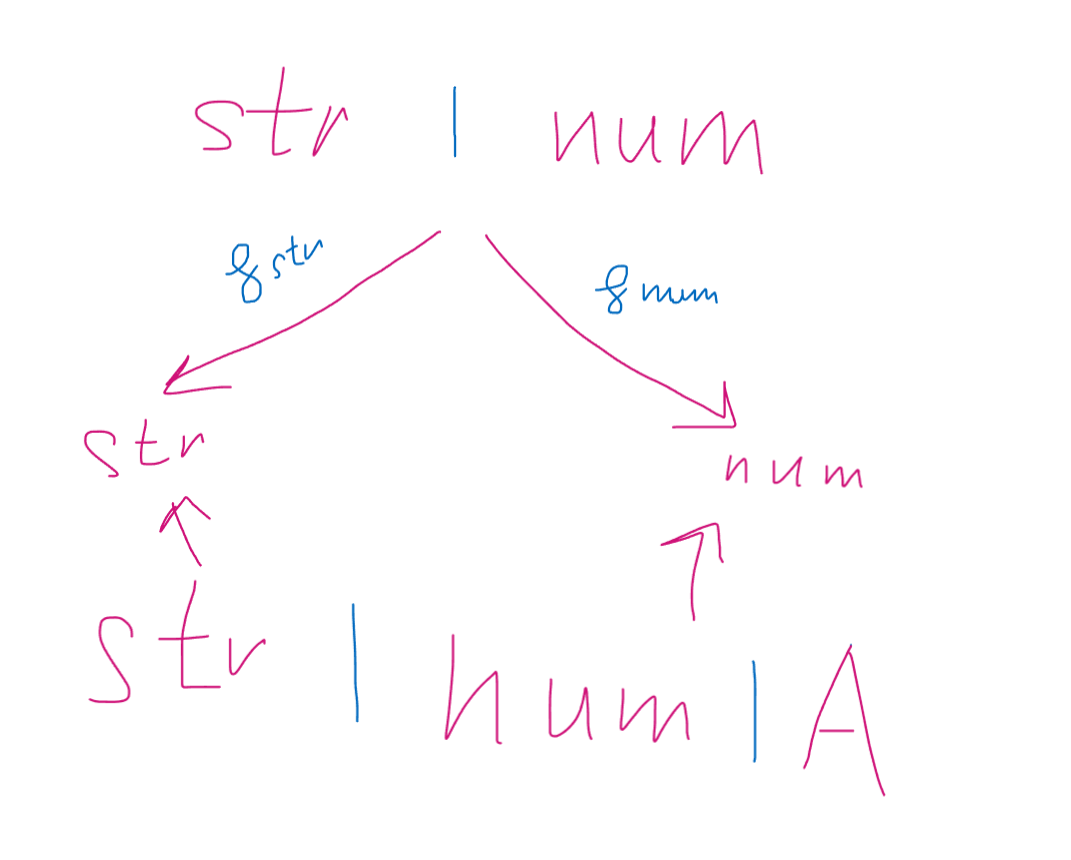 str | num
&str
&num
str
num
str | num | A